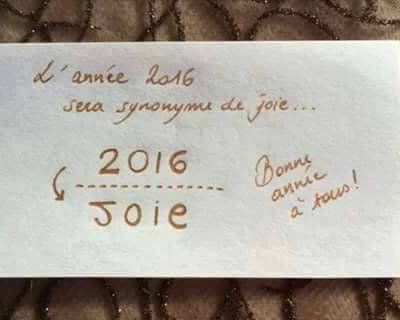 L'année 2016
sera synonyme de joie...
2016
Joie
Bonne
année
à tous!